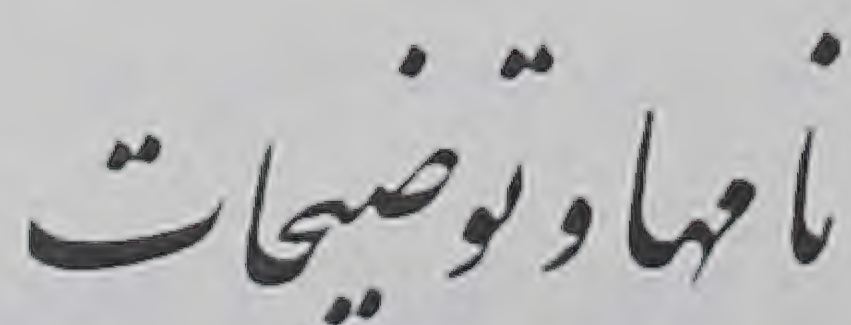 نامها و توضیحات